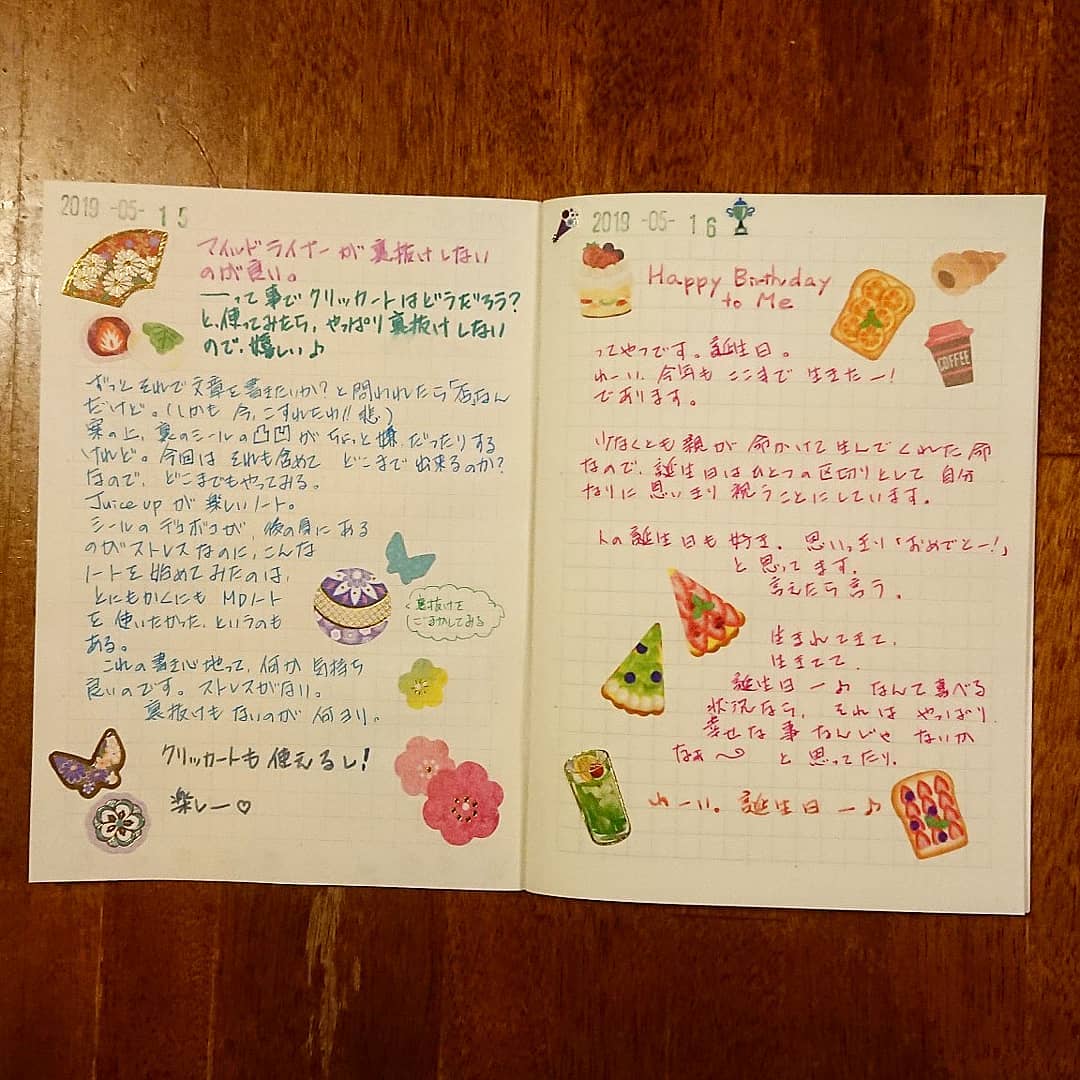 2019 -05- 15
マイルドライナーが裏抜けしない
のが良い。
——って事でクリッカートはどうだろう?
と、使ってみたら、やっぱり裏抜けしない
ので、嬉しい♪
ずっとそれで文章を書きたいか?と問われたら「否」なん
だけど。(しかも今、こすれたわ!!悲)
実の上、裏のシールの凸凹がちょっと嫌だったりする
けれど。今回はそれも含めて どこまで出来るのか?
なので、どこまでもやってみる。
Juice up が楽しいノート。
シールのデコボコが、後の頁にある
のがストレスなのに、こんな
ノートを始めてみたのは、
とにもかくにも MDノート
を使いたかった、というのも
ある。
これの書き心地って、何か気持ち
良いのです。ストレスがない。
裏抜けもないのが何より。
裏抜けを
ごまかしてみる
クリッカートも使えるし!
楽しー♡
2019 -05- 16
Happy Birthday
to Me
COFFEE
ってやつです。誕生日。
わーい、今年もここまで生きたー!
であります。
少なくとも親が命かけて生んでくれた命
なので、誕生日はひとつの区切りとして自分
なりに思いきり祝うことにしています。
人の誕生日も好き。思いっきり「おめでとー!」
と思ってます。
言えたら言う。
生まれてきて、
生きてて、
誕生日ー♪なんて喜べる
状況なら、それはやっぱり、
幸せな事なんじゃないか
なぁ〜 と思ってたり。
わーい。誕生日ー♪